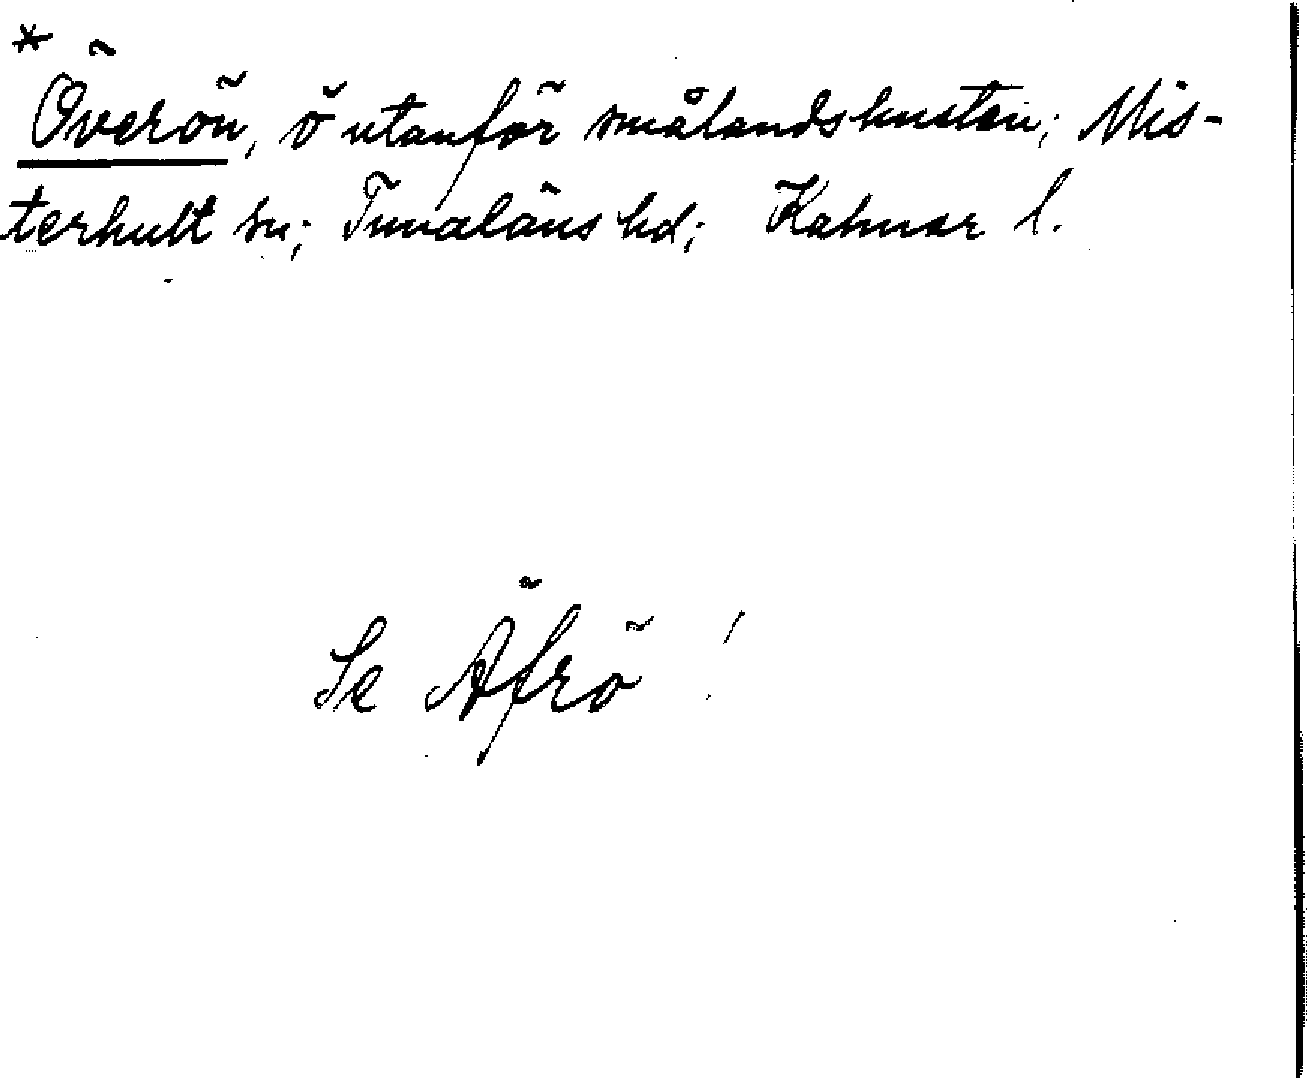 * Överön, ö utanför smålandskusten; Mis-
terhult sn; Tunaläns hd; Kalmar l.
Se Äfrö !